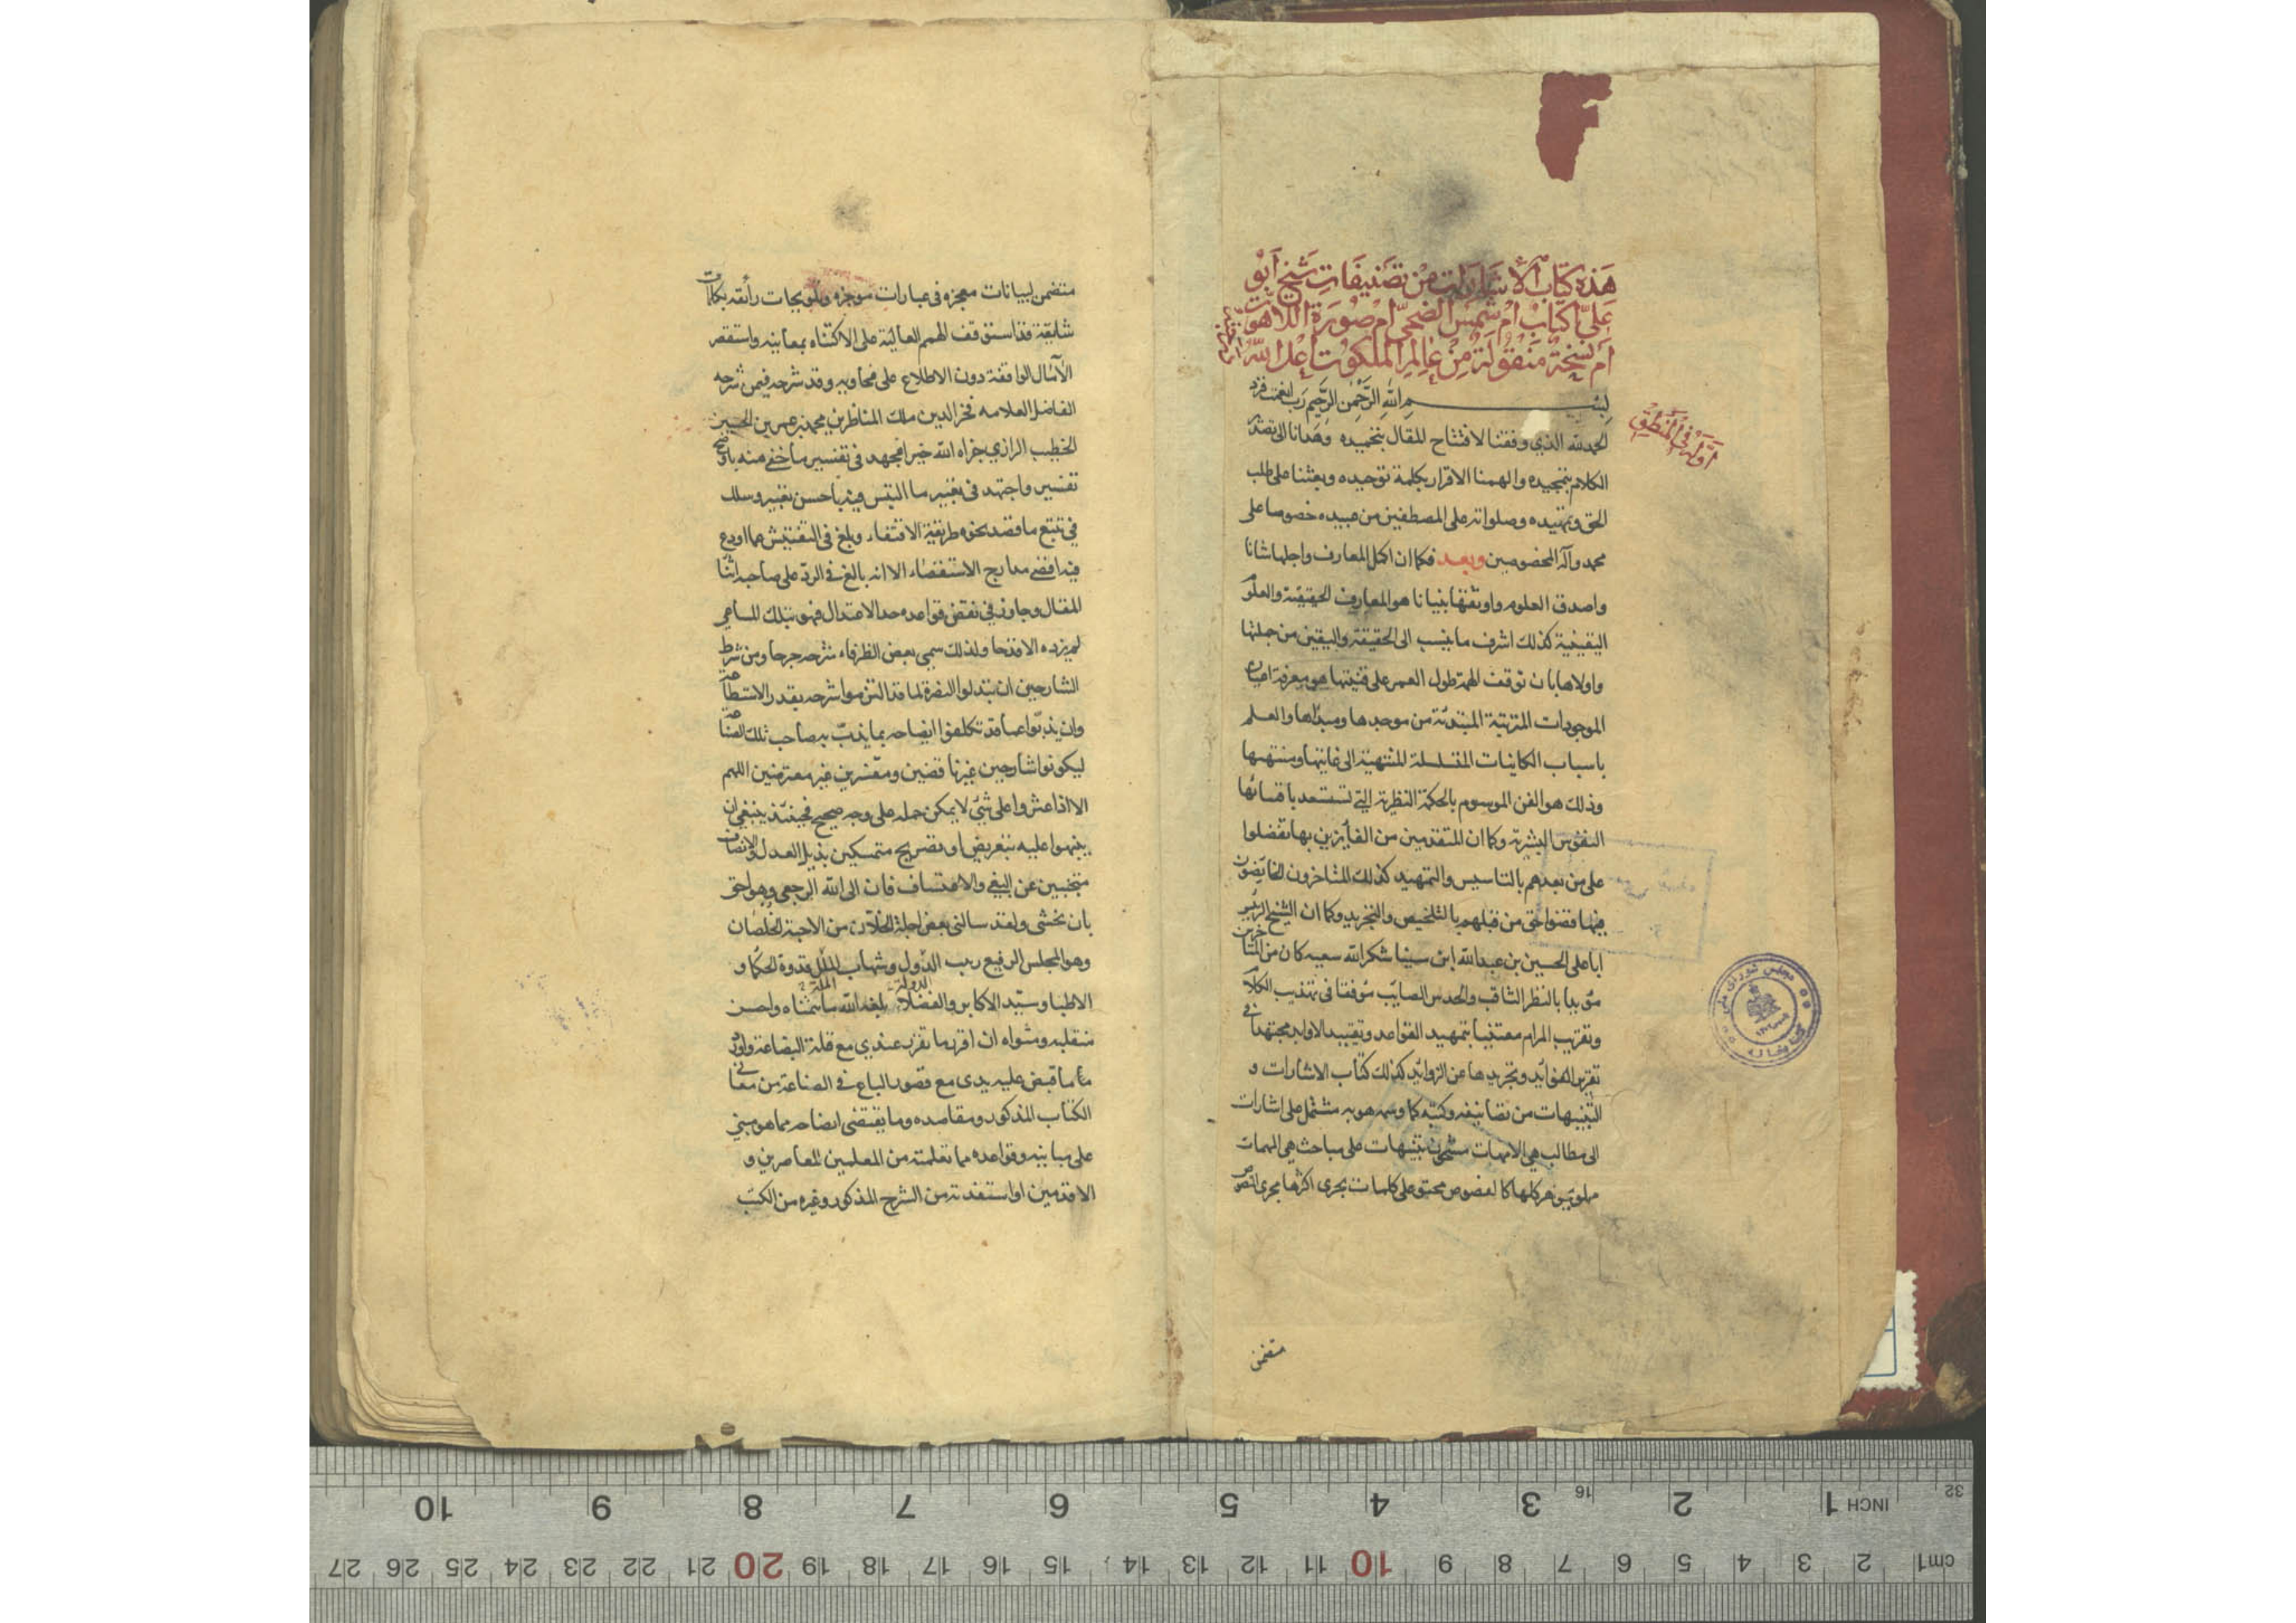 هَذِه كِتَابُ الأشَارَات مِنْ تَصنِيفَاتِ شَيخ اَبُو
عَلِىّ اَكِتَابُ اَمْ شَمْسُ الضُحىٰ اَمْ صُورَةُ اللاهُوت
اَم نُسْخَةٌ مَنْقُولَةٌ مِنْ عَالِمِ المَلَكُوت
بِسْمِ اللهِ الرَّحْمٰنِ الرَّحِيمِ رَب انعمت فزد
اوله فى المنطق
الحمد لله الذي وفقنا لافتتاح المقال بتحميده وهدانا الى تصدير
الكلام بتمجيده والهمنا الاقرار بكلمة توحيده وبعثنا على طلب
الحق وتمهيده وصلواته على المصطفين من عبيده خصوصا على
محمد وآله المخصوصين وبعد فكما ان اكمل المعارف واجلها شانا
واصدق العلوم واوثقها بنيانا هو المعارف الحقيقة والعلوم
اليقينية كذلك اشرف ما ينسب الى الحقيقة واليقين من جملتها
واولاها بان توقف الهمة طول العمر على قنيتها هو معرفة اعيان
الموجودات المترتبة المبتدئة من موجدها ومبدأها والعلم
باسباب الكاينات المتسلسلة المنتهية الى غايتها ومنتهىها
وذلك هو الفن الموسوم بالحكمة النظرية التى تستعد باقتنائها
النفوس البشرية وكما ان المتقدمين من الفائزين بها تفضلوا
على من بعدهم بالتاسيس والتمهيد كذلك المتاخرون الخايضون
فيها قضوا حق من قبلهم بالتلخيص والتجريد وكما ان الشيخ الرئيس
ابا على الحسين بن عبدالله ابن سينا شكر الله سعيه كان من المتاخرين
مؤيدا بالنظر الثاقب والحدس الصايب موفقا فى تهذيب الكلام
وتقريب المرام معتنيا بتمهيد القواعد وتقييد الاوابد مجتهدا فى
تقرير الفوائد وتجريدها عن الزوائد كذلك كتاب الاشارات و
التنبيهات من تصانيفه وكتبه كما وسمه هو به مشتمل على اشارات
الى مطالب هى الامهات مشحون بتنبيهات على مباحث هى المهمات
مملو بجواهر كلها كالفصوص محتو على كلمات يجرى اكثرها مجرى النصوص
متضمن
مجلس شوراى ملى
كتابخانه
متضمن لبيانات معجزه فى عبارات موجزه وتلويحات رائقه بكلمات
شايقة قد استوقف الهمم العالية على الاكتناه بمعانيه واستقصر
الآمال الوافقة دون الاطلاع على فحاويه وقد شرحه فيمن شرحه
الفاضل العلامه فخر الدين ملك المناظرين محمد بن عمر بن الحسين
الخطيب الرازي جزاه الله خيرا فجهد فى تفسير ما خفى منه باوضح
تفسير واجتهد فى تعبير ما التبس فيه باحسن تعبير وسلك
في تتبع ما قصد نحوه طريقة الاقتفاء وبلغ فى التفتيش عما اودع
فيه اقصى مدارج الاستقصاء الا انه بالغ فى الرد على صاحبه اثنا
المقال وجاوز في نقض قواعده حد الاعتدال فهو بتلك المساعى
لم يزده الا قدحا ولذلك سمي بعض الظرفاء شرحه جرحا ومن شرط
الشارحين ان يبذلوا النصرة لما قد التزموا شرحه بقدر الاستطاعة
وان يذبوا عما قد تكلفوا ايضاحه بما يذب به صاحب تلك الصناعة
ليكونوا شارحين غير ناقضين ومفسرين غير معترضين اللهم
الا اذا عثروا على شئ لا يمكن حمله على وجه صحيح فحينئذ ينبغي ان
ينبهوا عليه بتعريض او تصريح متمسكين بذيل العدل والانصاف
متجنبين عن البغي والاعتساف فان الى الله الرجعى وهو احق
بان يخشى ولقد سالنى بعض اجلة الخلان من الاحبة الخلصان
وهو المجلس الرفيع رب الدول وشهاب الملل قدوة الحكما و
الدولة الملة
الاطبا وسيد الاكابر والفضلا بلغه الله ما يتمناه واحسن
منقلبه ومثواه ان اقرر ما تقرر عندي مع قلة البضاعة واورد
ما قبض عليه يدى مع قصور الباع فى الصناعة من معانى
الكتاب المذكور ومقاصده وما يقتضى ايضاحه مما هو مبنى
على مبانيه وقواعده مما تعلمته من المعلمين المعاصرين و
الاقدمين او استفدته من الشرح المذكور وغيره من الكتب
1 INCH 2 3 4 5 6 7 8 9 10
16 32
cm 1 2 3 4 5 6 7 8 9 10 11 12 13 14 15 16 17 18 19 20 21 22 23 24 25 26 27